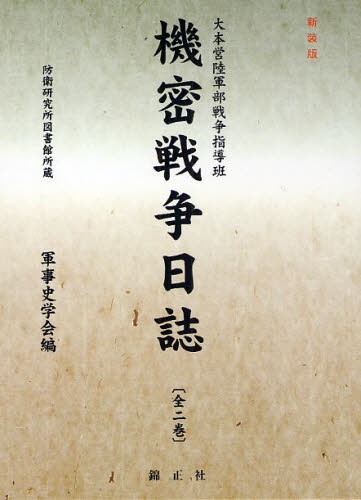 新装版
大本営陸軍部戦争指導班
機密戦争日誌
〔全二巻〕
防衛研究所図書館所蔵
軍事史学会編
錦正社